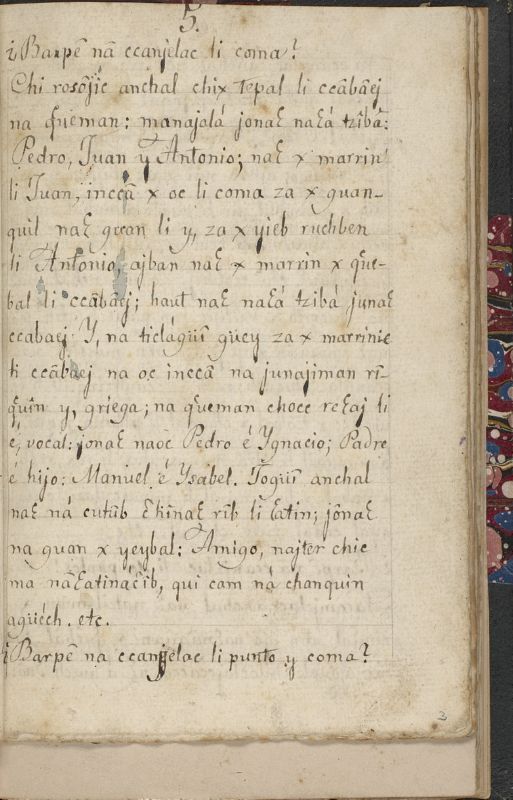 5.
¿Barpẽ nã ccanjelac li coma?
Chi rosõjic anchal chix tepal li ccãbãej
na q̃ueman: manajalá jonaꜫ naꜫá tzibã:
Pedro, Juan y Antonio; naꜫ x marrin
li Juan, inccã x oc li coma za x quan-
quil naꜫ gccan li y, za x yieb ruchben
li Antonio, ajban naꜫ x marrin x q̃ue-
bal li ccãbãej; haut naꜫ naꜫá tzibá junaꜫ
ccabaej Y, na ticlágüĩ güey za x marrinic
li ccãbaej na oc inccã na junajiman rĩ-
q̃uin y, griega; na q̃ueman chocc reꜫaj li
é, vocal: jonaꜫ naoc Pedro é Ygnacio; Padre
é hijo: Manuel é Ysabel. Togüĩ anchal
naꜫ ná cutũb c̃hĩnaꜫ rĩb li ꜫatin; jõnaꜫ
na quan x yeybal: Amigo, najter chic
ma naꜫatinác̃ĩb, qui cam ná chanquin
agüech. etc.
¿Barpẽ na ccanjelac li punto y coma?
3